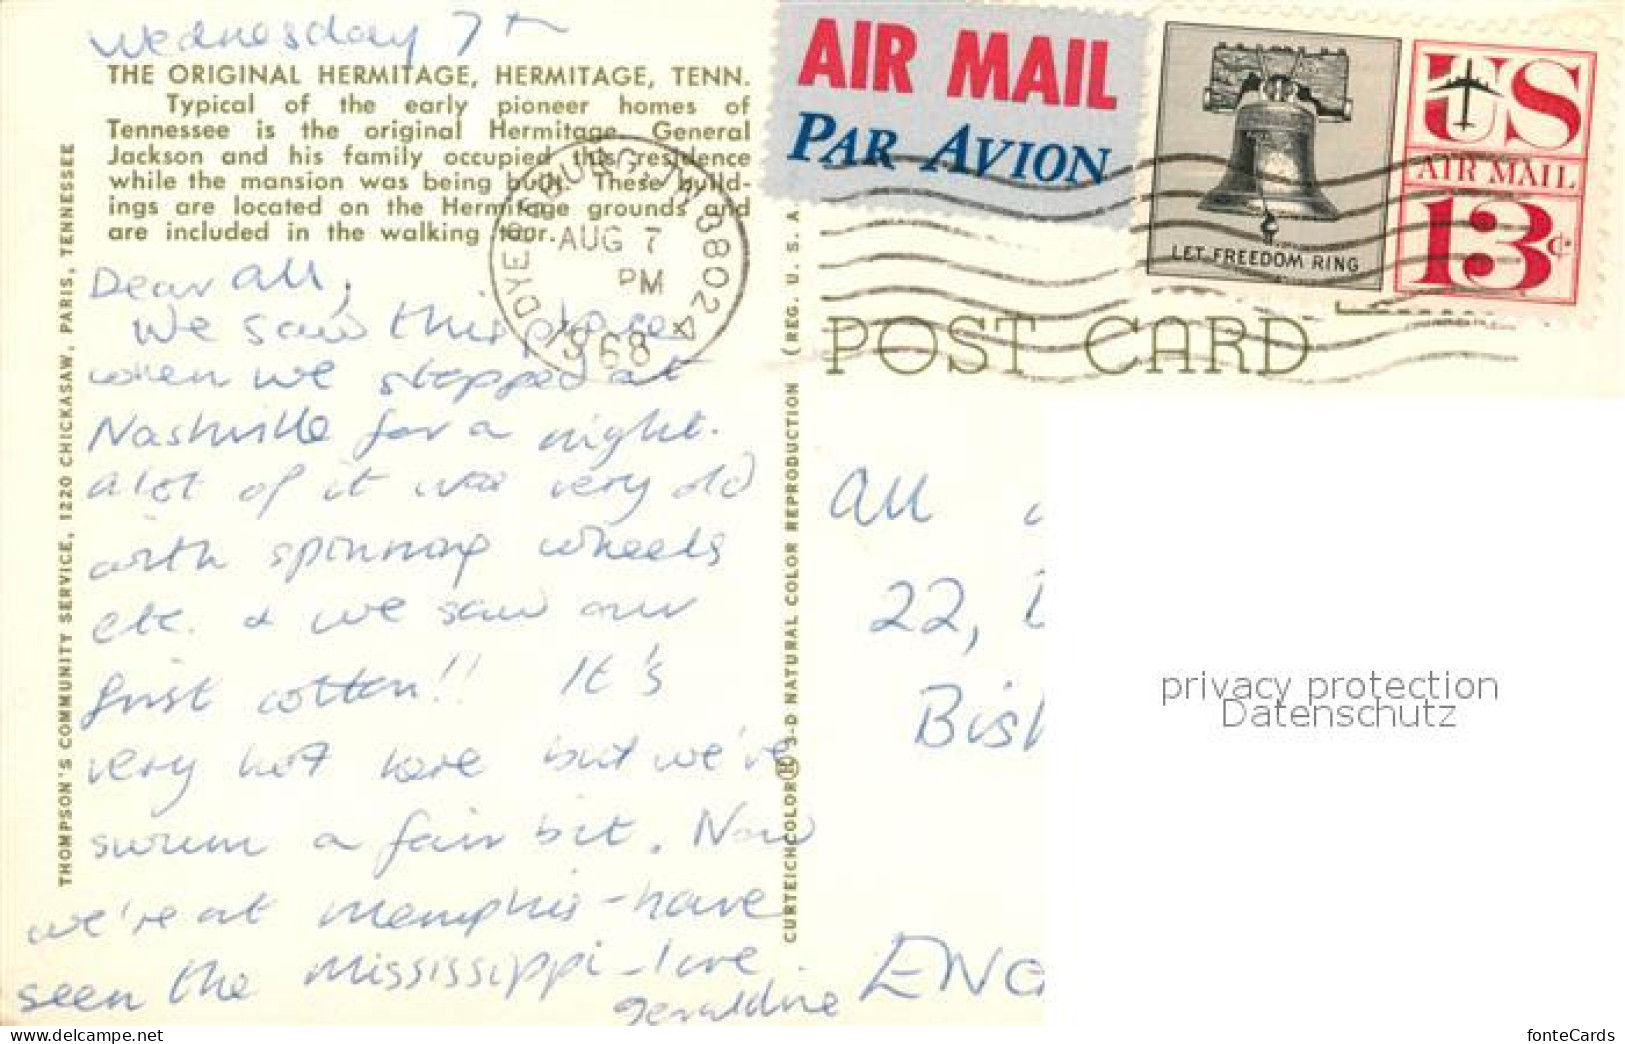 Wednesday 7th
THE ORIGINAL HERMITAGE, HERMITAGE, TENN.
Typical of the early pioneer homes of
Tennessee is the original Hermitage. General
Jackson and his family occupied this residence
while the mansion was being built. These build-
ings are located on the Hermitage grounds and
are included in the walking tour.
Dear all,
We saw this place
when we stopped at
Nashville for a night.
A lot of it was very old
with spinning wheels
etc. & we saw our
first cotton!! It's
very hot here but we've
swum a fair bit. Now
we're at Memphis - have
seen the Mississippi - love
Geraldine
THOMPSON'S COMMUNITY SERVICE, 1220 CHICKASAW, PARIS, TENNESSEE
DYERSBURG, TN 38024
AUG 7
PM
1968
CURTEICHCOLOR® 3-D NATURAL COLOR REPRODUCTION (REG. U. S. A
AIR MAIL
PAR AVION
LET FREEDOM RING
US
AIR MAIL
13¢
POST CARD
All
22,
Bish
ENG
privacy protection
Datenschutz
fonteCards